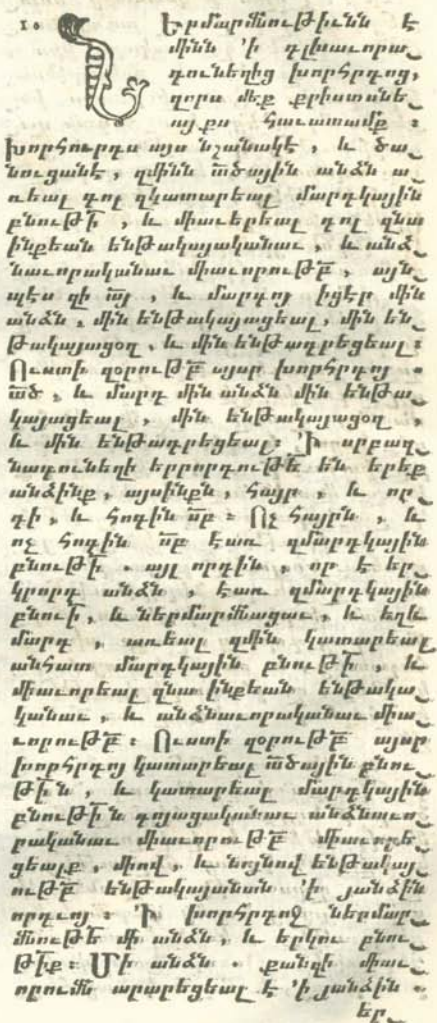 10 Ներմարմնութիւնն է
մինն ՚ի գլխաւորա_
գունեղից խորհրդոց,
զորս մեք քրիստոնե_
այքս հաւատամք ։
խորհուրդս այս նշանակէ, և ծա_
նուցանէ, զմինն ա՟ծային անձն ա_
ռեալ գոլ զկատարեալ մարդկային
բնութի՟, և միաւերեալ գոլ զնա
ինքեան ենթակայականաւ, և անձ_
նաւորականաւ միաւորութբ՟, այն_
պէս զի ա՟յ, և մարդոյ իցէր մին
անձն, մին ենթակայացեալ, մին են_
թակայացօղ, և մին ենթադրեցեալ։
Ուստի զօրութբ՟ այսր խորհրդոյ .
ա՟ծ, և մարդ մին անձն մին ենթա_
կայացեալ, մին ենթակայացօղ,
և մին ենթադրեցեալ։ Ի սրբազ_
նագունեղի երրորդութե՟ են երեք
անձինք, այսինքն, հայր, և որ_
դի, և հոգին ս՟բ ։ Ոչ հայրն, և
ոչ հոգին ս՟բ էառ զմարդկային
բնութի՟ . այլ որդին, որ է եր_
կրորդ անձն, էառ զմարդկային
բնուի՟, և ներմարմնացաւ, և եղև
մարդ, առեալ զմին կատարեալ
անհատ մարդկային բնութի՟, և
միաւորեալ զնա ինքեան ենթակա_
կանաւ, և անձնաւորականաւ միա_
ւորութբ՟ ։ Ուստի զօրութբ՟ այսր
խորհրդոյ կատարեալ ա՟ծային բնու_
թի՟ն, և կատարեալ մարդկային
բնութի՟ն գոյացականաւ անձնաւո_
րականաւ միաւորութբ՟ միաւորե_
ցեալք, միով, և նոյնով ենթակայ_
ութբ՟ ենթակայանան ՚ի յանձին
որդւոյ ։ Ի խորհրդոջ ներմար_
մնութե՟ մի անձն, և երկու բնու_
թիք։ Մի անձն . քանզի միա_
ւորումն արարեցեալ է ՚ի յանձին .
եր_